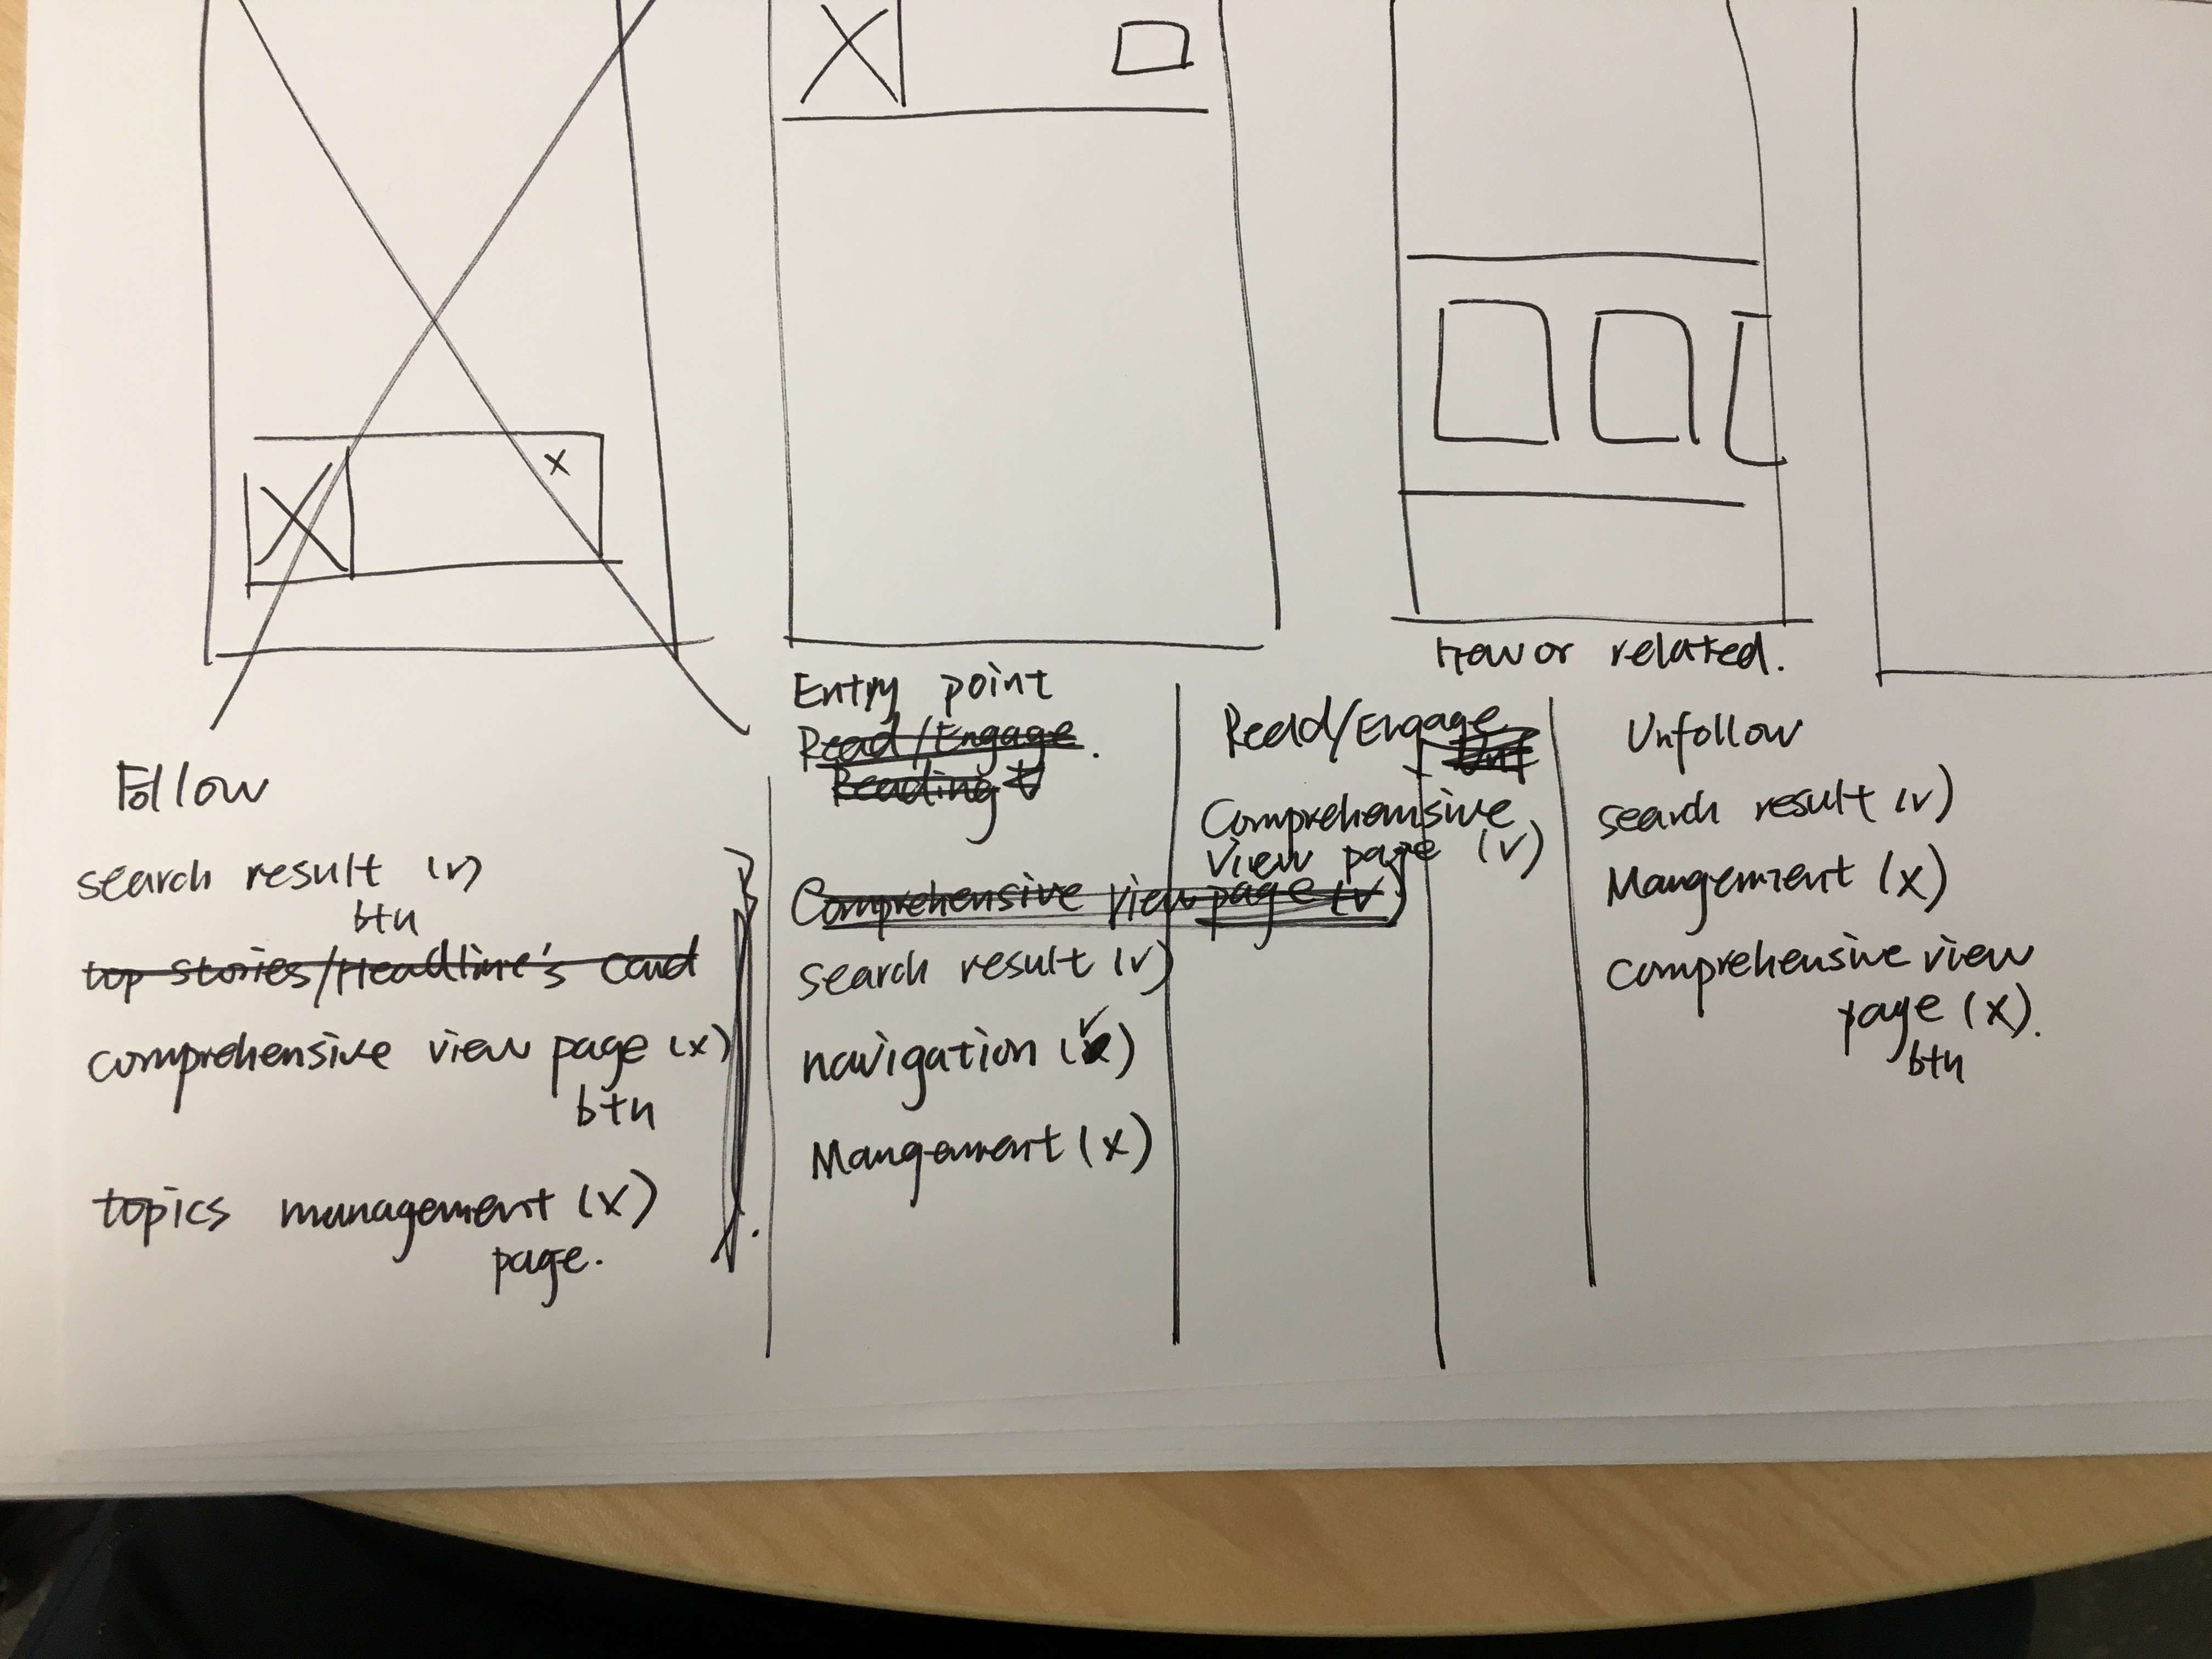 how or related.
Follow
search result (v)
btn
top stories/Headline's card
comprehensive view page (x)
btn
topics management (x)
page.
Entry point
Read/Engage.
Reading
Comprehensive View page (v)
search result (v)
navigation (x)
Mangement (x)
Read/Engage
Comprehensive
View page (v)
Unfollow
search result (v)
Mangement (x)
comprehensive view
page (x).
btn